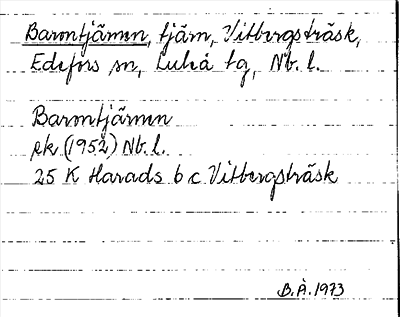 Barmtjärnen, tjärn, Vitbergsträsk,
Edefors sn, Luleå tg, Nb. l.
Barmtjärnen
ek (1952) Nb. l.
25 K Harads 6 c Vitbergsträsk
B.Å. 1973